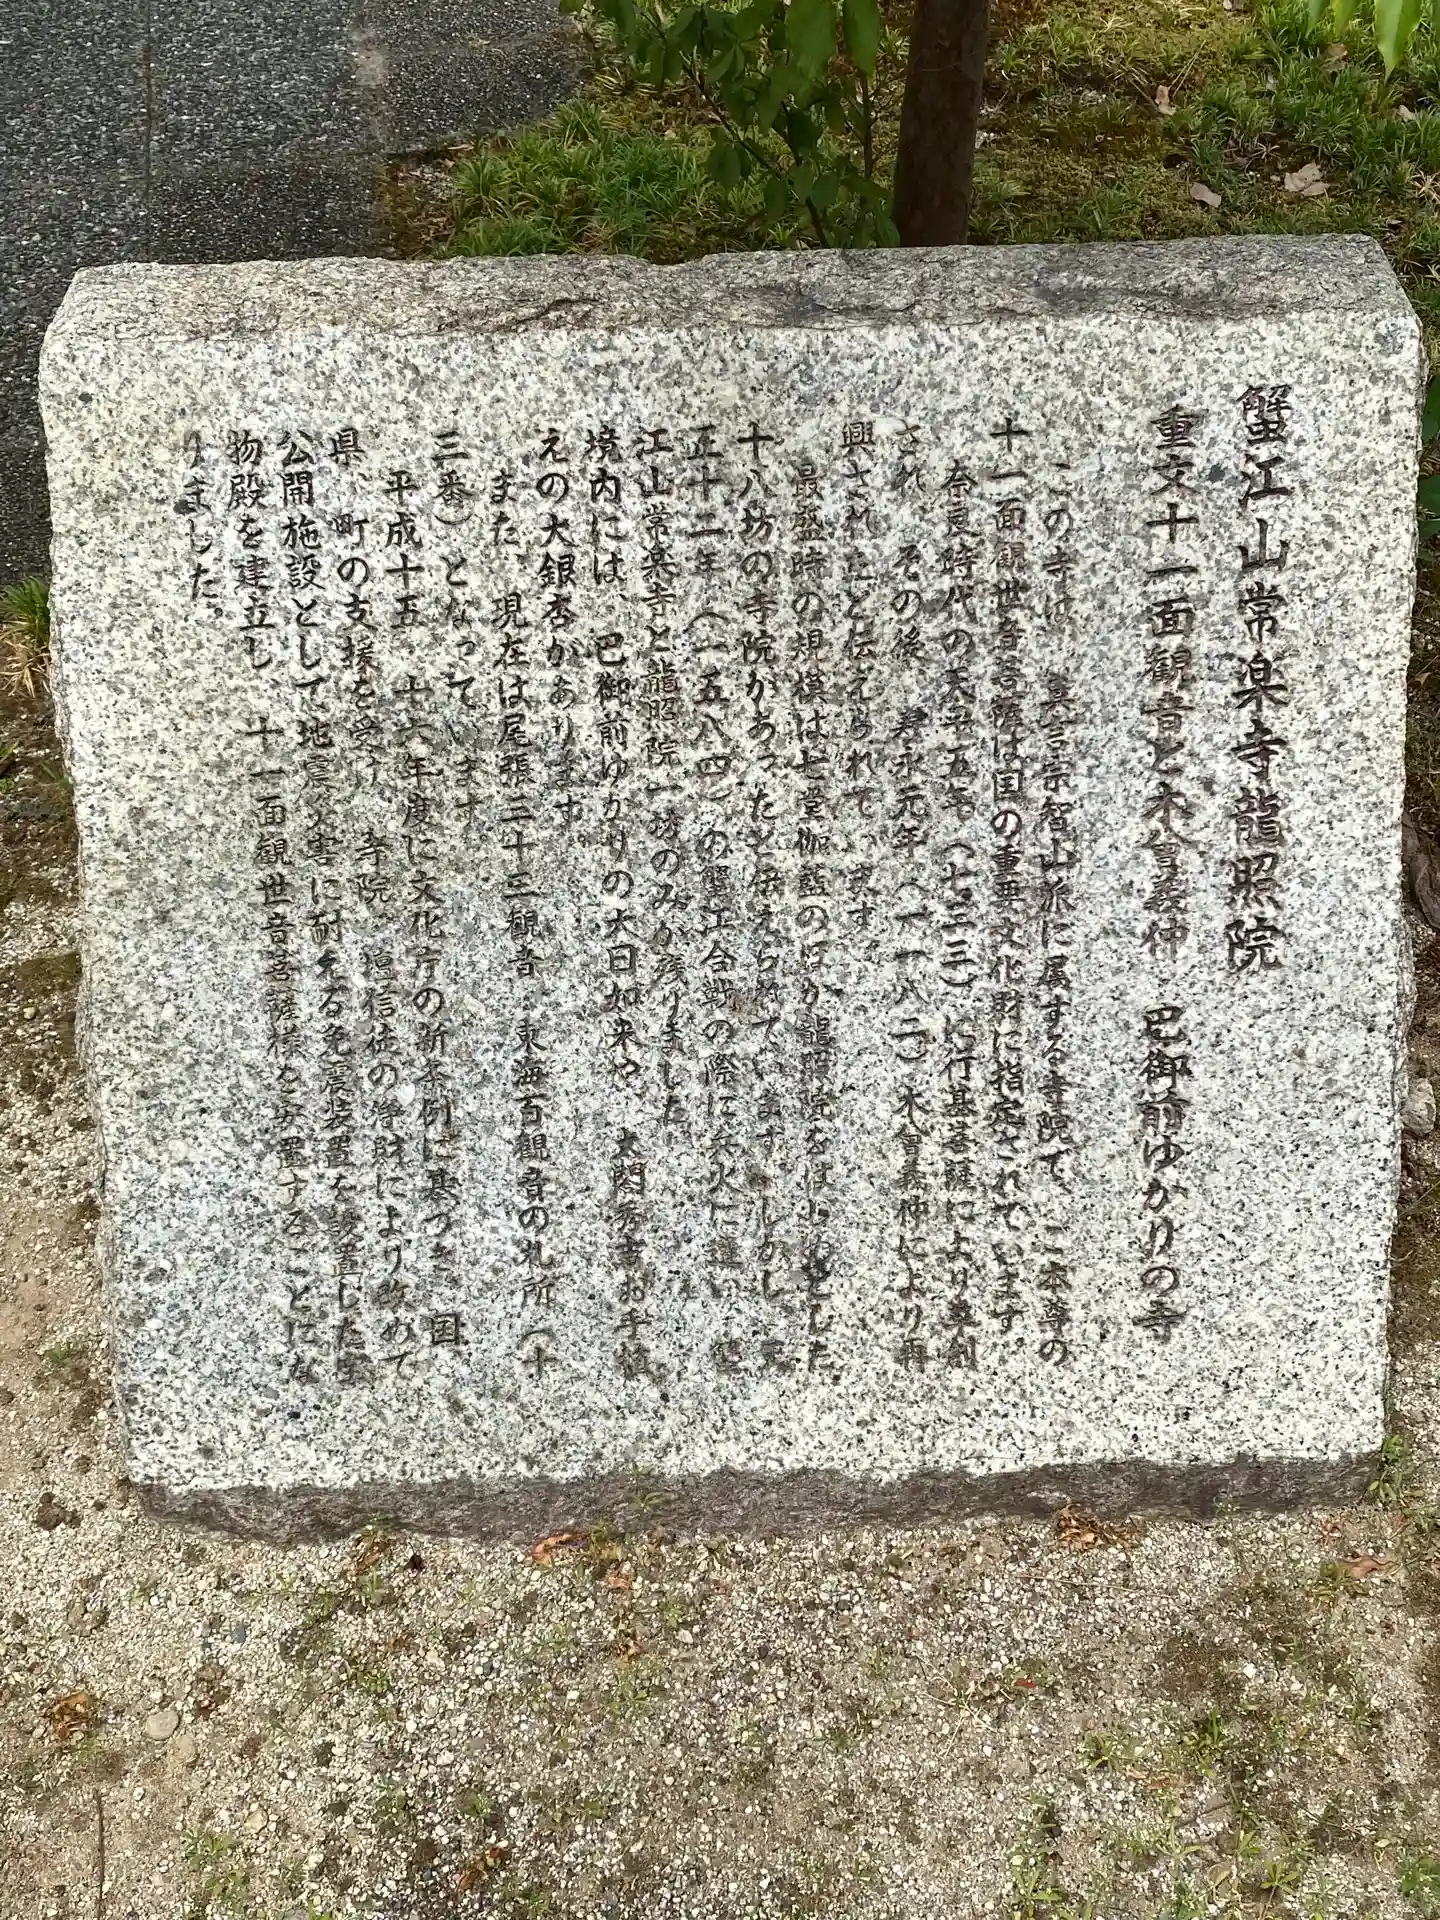 蟹江山常楽寺龍照院
重文十一面観音と木曾義仲 巴御前ゆかりの寺
この寺は、真言宗智山派に属する寺院で、ご本尊の
十一面観世音菩薩は国の重要文化財に指定されています。
奈良時代の天平五年(七三三)に行基菩薩により草創
され、その後、寿永元年(一一八二)木曾義仲により再
興されたと伝えられています。
最盛時の規模は七堂伽藍のほか龍照院をはじめとした
十八坊の寺院があったと伝えられています。しかし、天
正十二年(一五八四)の蟹江合戦の際に兵火に遭い、蟹
江山常楽寺と龍照院一坊のみが残りました。
境内には、巴御前ゆかりの大日如来や、太閤秀吉お手植
えの大銀杏があります。
また、現在は尾張三十三観音、東海百観音の札所(十
三番)となっています。
平成十五、十六年度に文化庁の新条例に基づき、国、
県、町の支援を受け、寺院、檀信徒の浄財により改めて
公開施設として地震災害に耐える免震装置を設置した宝
物殿を建立し、十一面観世音菩薩様を安置することにな
りました。